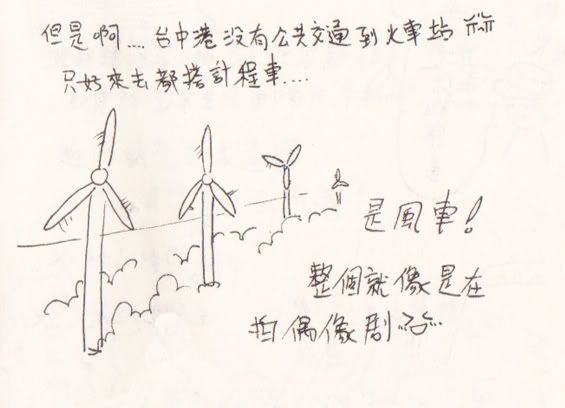 但是啊....台中港没有公共交通到火車站
只好來去都搭計程車....
是風車!
整個就像是在
拍偶像劇